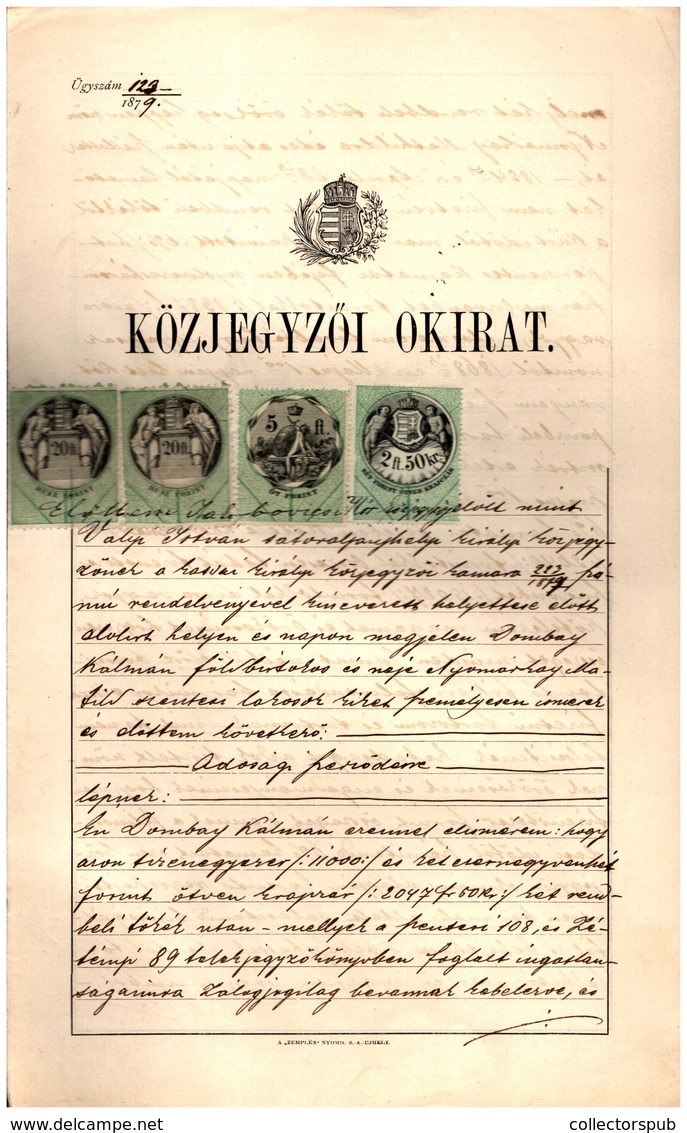 Ügyszám 123
1879.
KÖZJEGYZŐI OKIRAT.
20 ft.
HUSZ FORINT
20 ft.
HUSZ FORINT
5 ft
ÖT FORINT
2 ft. 50 kr.
KÉT FORINT ÖTVEN KRAJCZÁR
Előttem mint
István sátoraljaujhelyi királyi közjegy-
zőnek a kassai királyi közjegyzői kamara 223/1879 szá-
mú rendelvényével kinevezett helyettese előtt
alolirt helyen és napon megjelen Dombay
Kálmán földbirtokos és neje Nyomárkay Ma-
tild szentesi lakosok kiket személyesen ismerek
és előttem következő:
Adósági szerződésre
lépnek:
Én Dombay Kálmán ezennel elismérem: hogy
azon tizenegyezer /:11000:/ és kétezernegyvenhét
forint ötven krajczár /:2047 fr 50 kr:/ két rend-
beli tőkék után – mellyek a 108, és
89 telekjegyzőkönyvben foglalt ingatlan-
ságaimra Zálogjogilag bevannak kebelezve, és
A „ZEMPLÉN" NYOMD. S. A.-UJHELY.
collectorspub